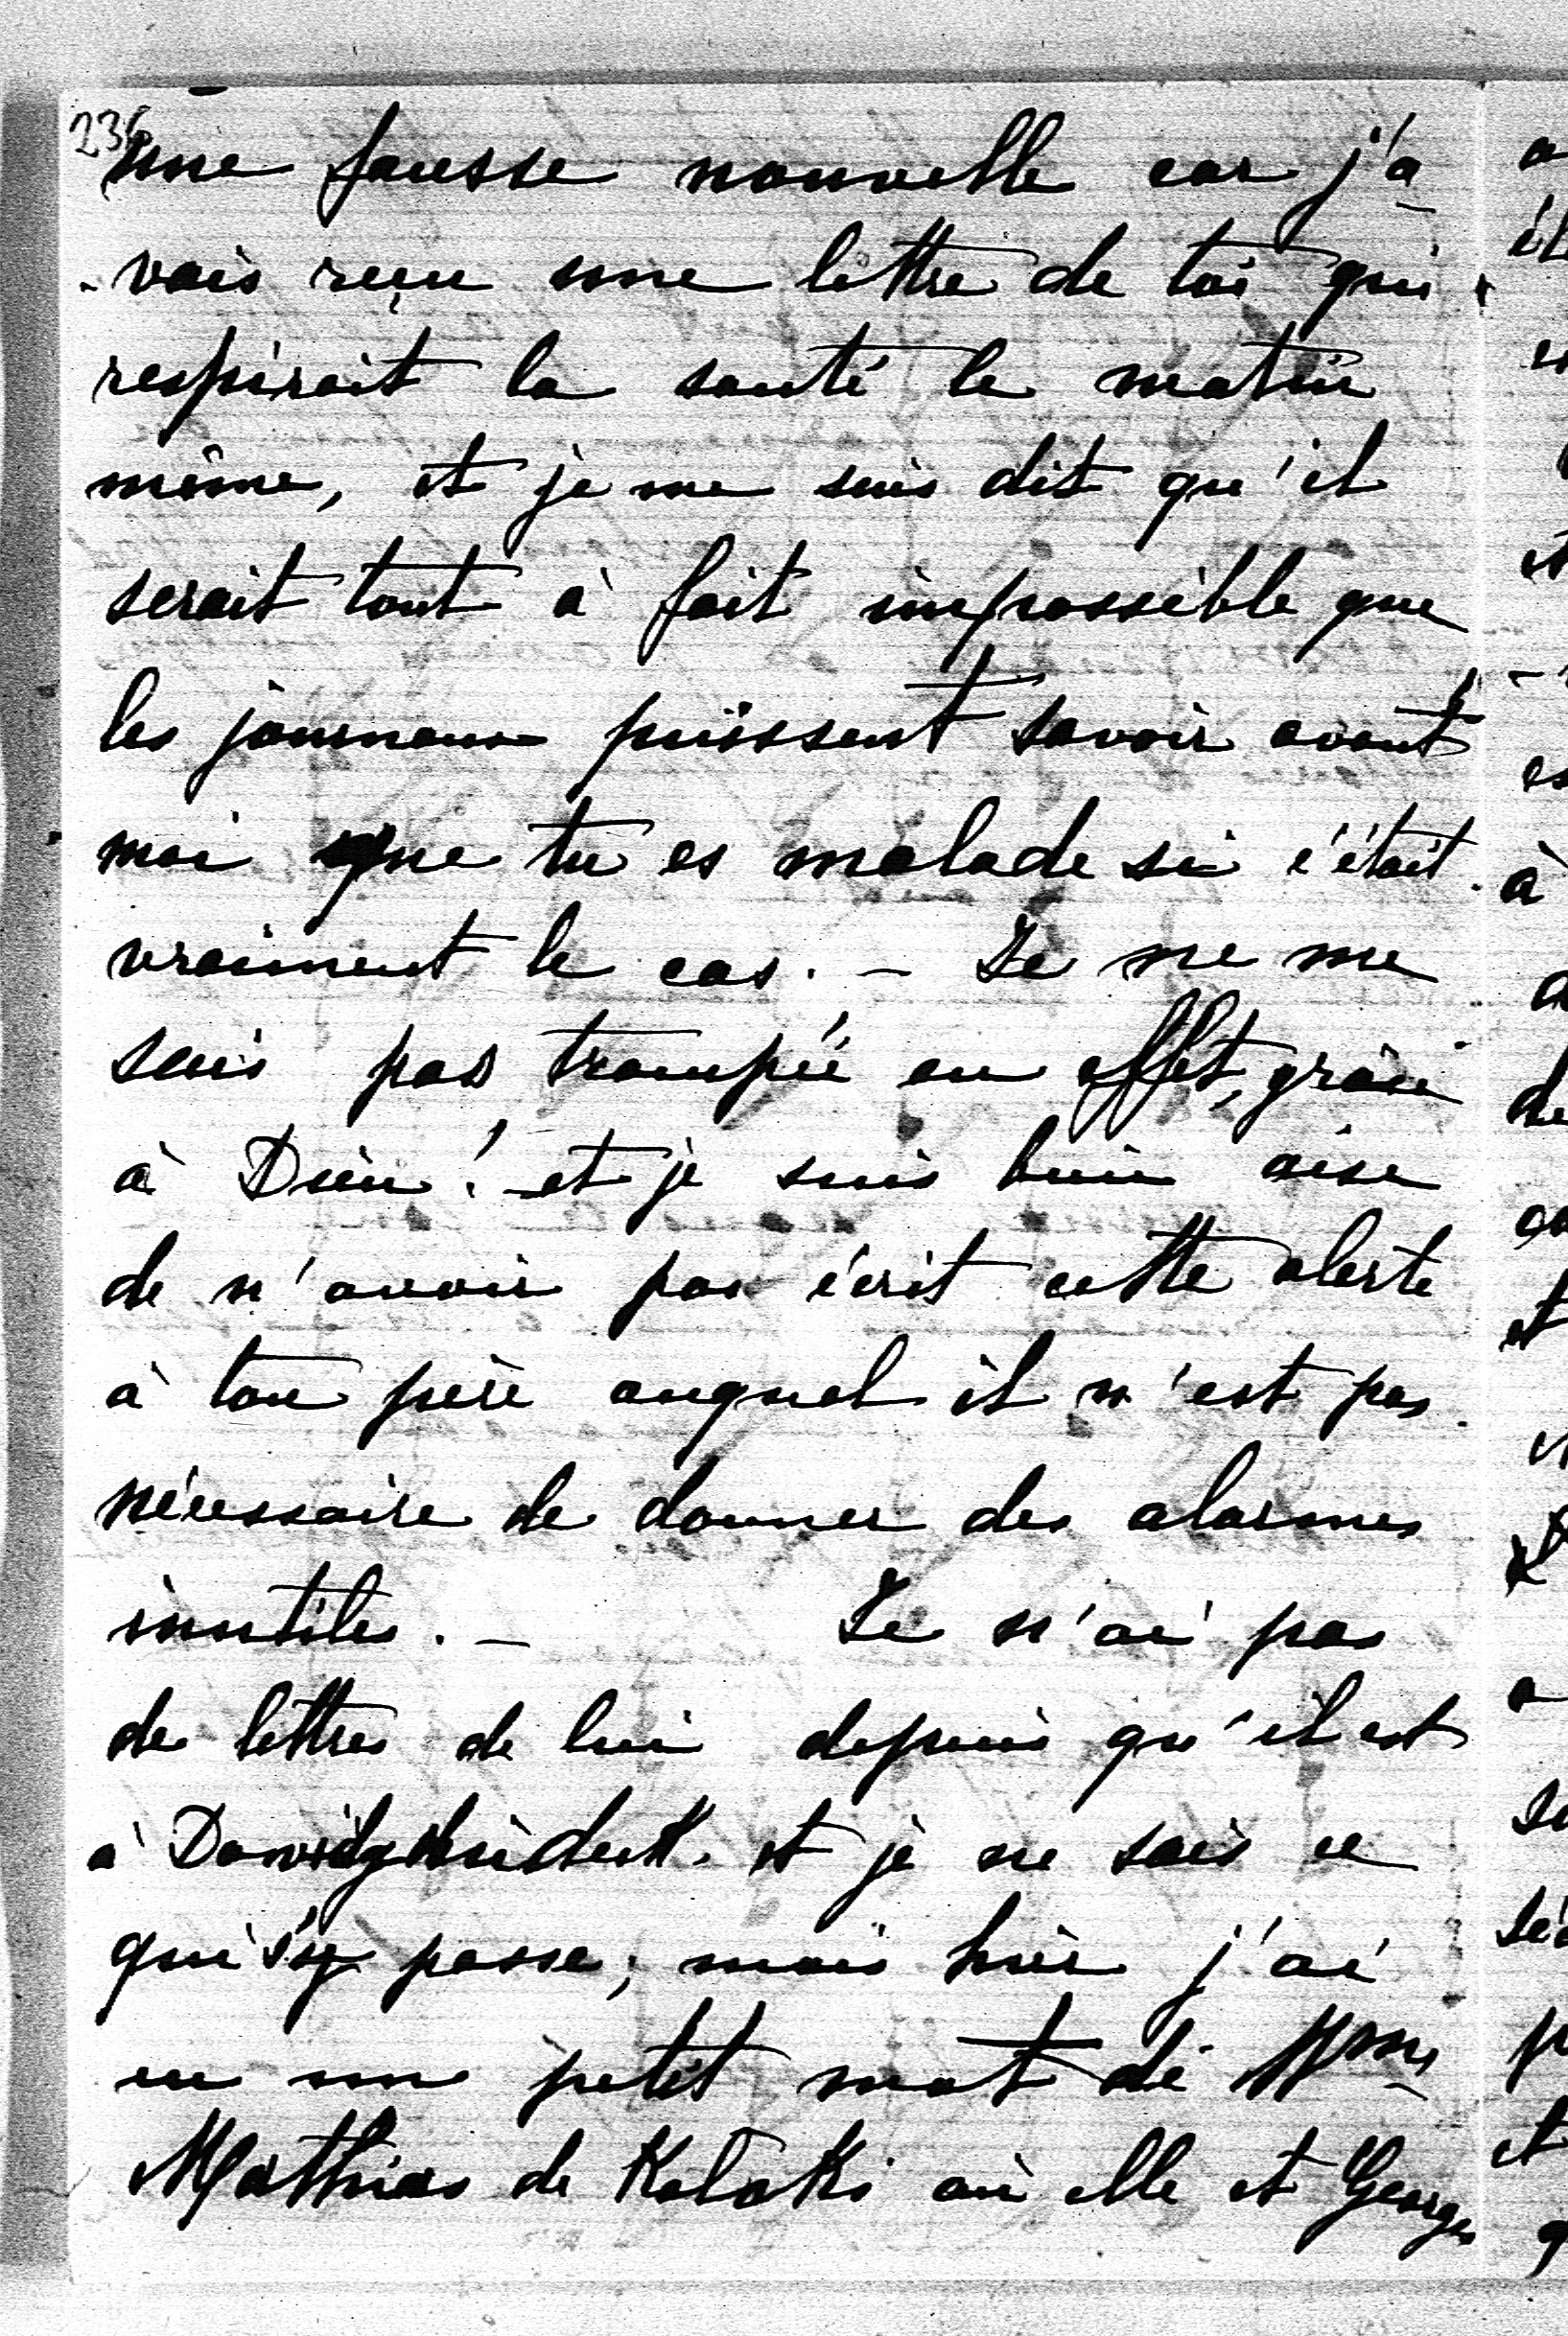 236
une fausse nouvelle car j'a
-vais reçu une lettre de toi qui
respirait la santé le matin
même, et je me suis dit qu'il
serait tout à fait impossible que
les journaux puissent savoir avant
moi que tu es malade si c'était
vraiment le cas. — Je ne me
suis pas trompée en effet, grâce
à Dieu! et je suis bien aise
de n'avoir pas écrit cette alerte
à ton père auquel il n'est pas
nécessaire de donner des alarmes
inutiles. — Je n'ai pas
de lettres de lui depuis qu'il est
à et je ne sais ce
qui s'y passe; mais hier j'ai
eu un petit mot de Mme
Mathias de Kolaki où elle et Georges